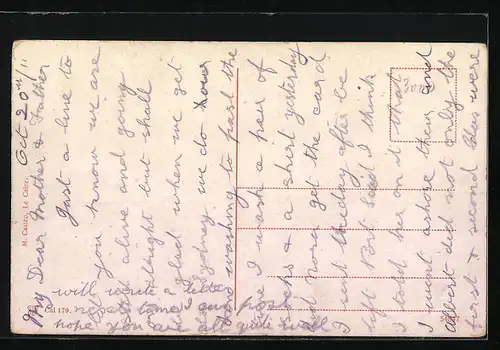 Oct 20th/11
My Dear Mother & Father
Just a line to
let you know we are
all alive and going
alright but shall
be glad when we get
to Sydney. we do our
own washing to past the
time I wash a pair of
socks & a shirt yesterday
did you get the card
I sent the day after we
left Port Said I think
I told her on it that
I went ashore them and
Albert did not only the
first & second Class were
will write a letter
next time I can
hope you are all quite well
M. Castro, Le Caire.
Cal 179.